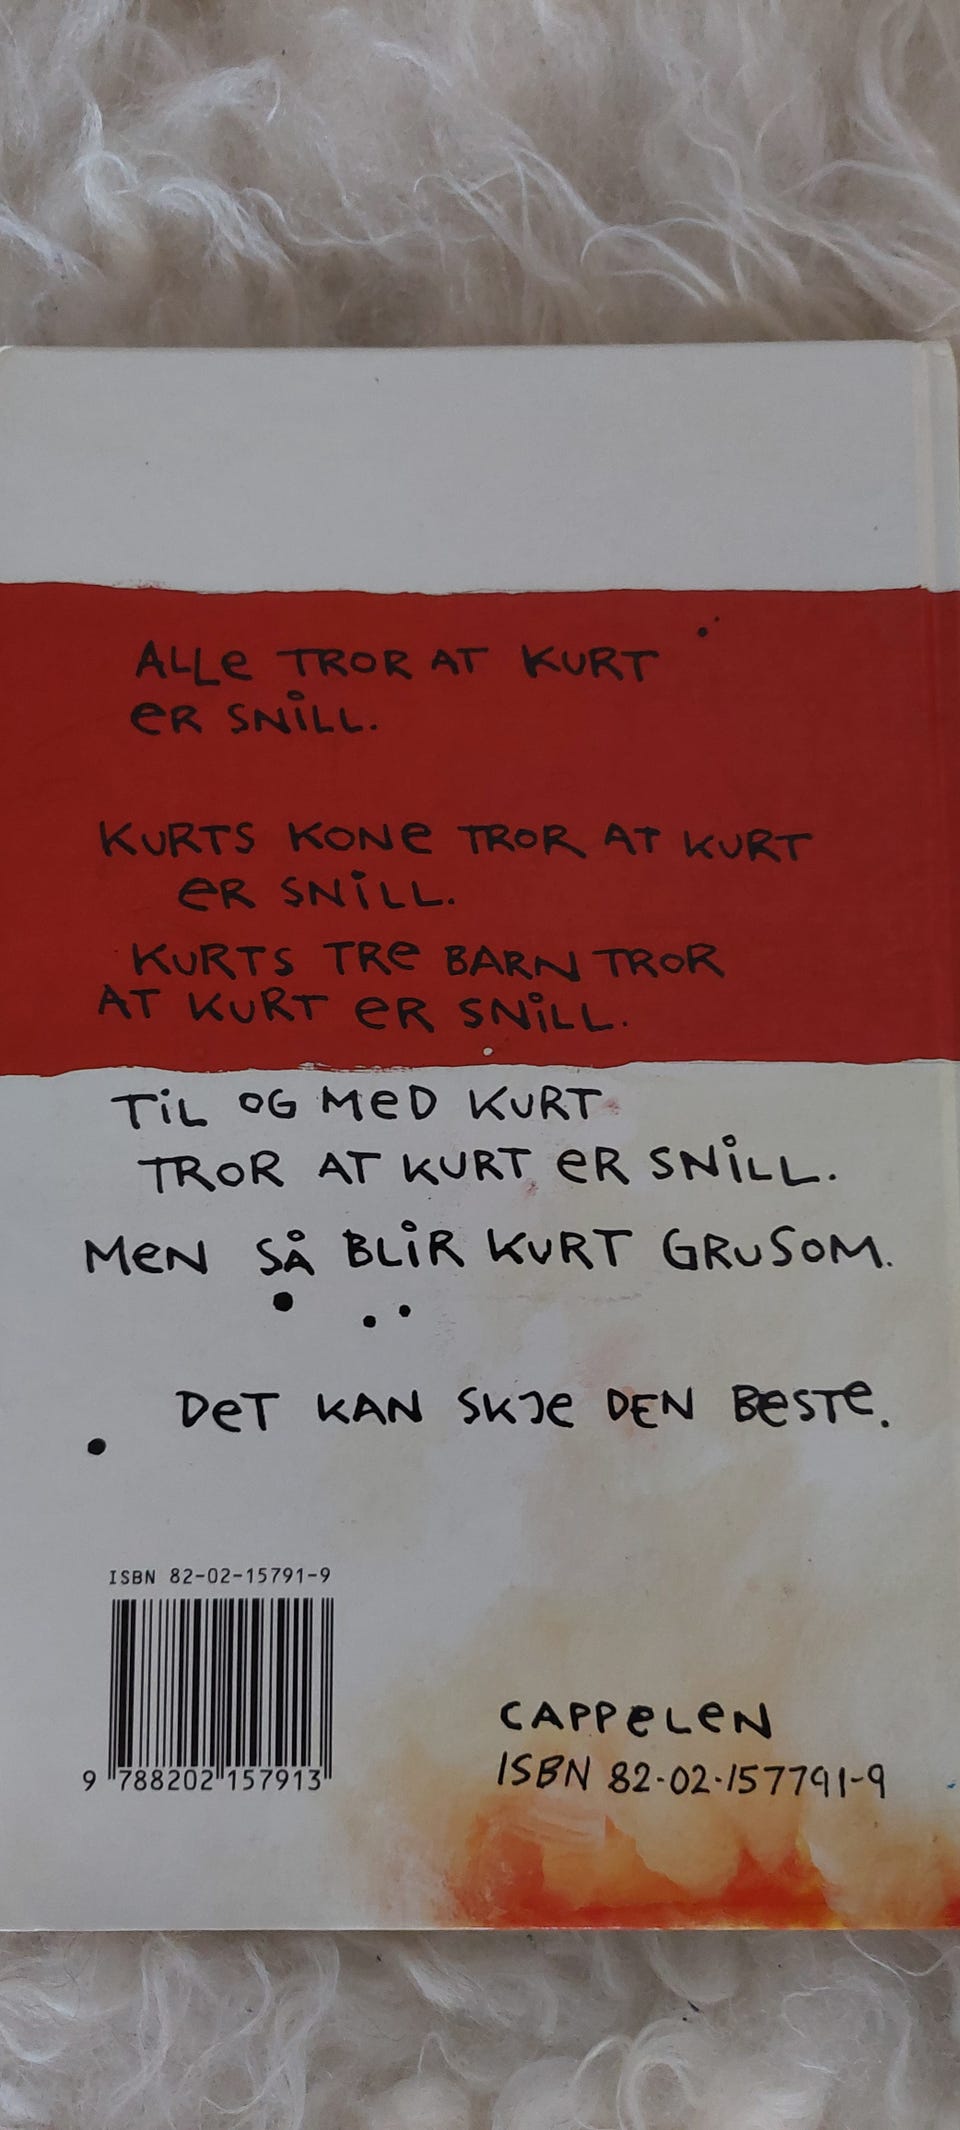 ALLE TROR AT KURT
ER SNILL.
KURTS KONE TROR AT KURT
ER SNILL.
KURTS TRE BARN TROR
AT KURT ER SNILL.
TIL OG MED KURT
TROR AT KURT ER SNILL.
MEN SÅ BLIR KURT GRUSOM.
DET KAN SKJE DEN BESTE.
ISBN 82-02-15791-9
9 788202 157913
CAPPELEN
ISBN 82-02-157791-9